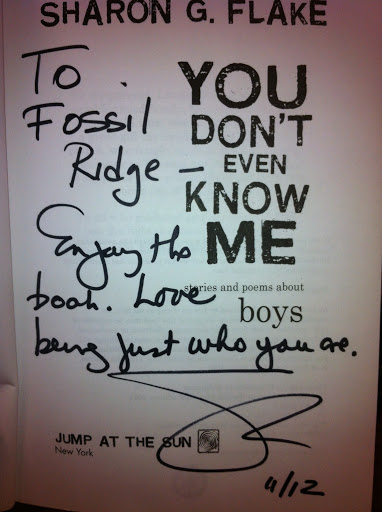 SHARON G. FLAKE
To
Fossil
Ridge –
YOU
DON'T
EVEN
KNOW
ME
stories and poems about
boys
Enjoy this
book. Love
being just who you are.
JUMP AT THE SUN
New York
4/12